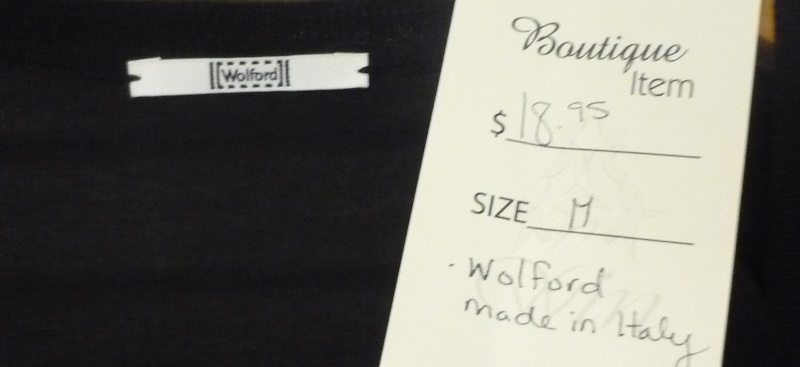 Wolford
Boutique
Item
$18.95
SIZE M
· Wolford
made in Italy